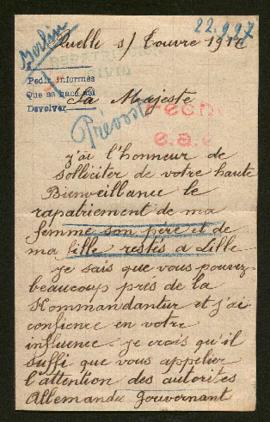 Berlin
22.997
Ruelle s/ Touvre 1916
Pedir informes
Que se haga así
Devolver
Sa Majeste
Prévost
j'ai l'honneur de
solliciter de votre haute
Bienveillance le
rapatriement de ma
femme son père et de
ma fille restés à Lille
je sais que vous pouvez
beaucoup pres de la
Kommandantur et j'ai
confience en votre
influence. je crois qu'il
suffi que vous appeler
l'attention des autorites
Allemande gouvernant